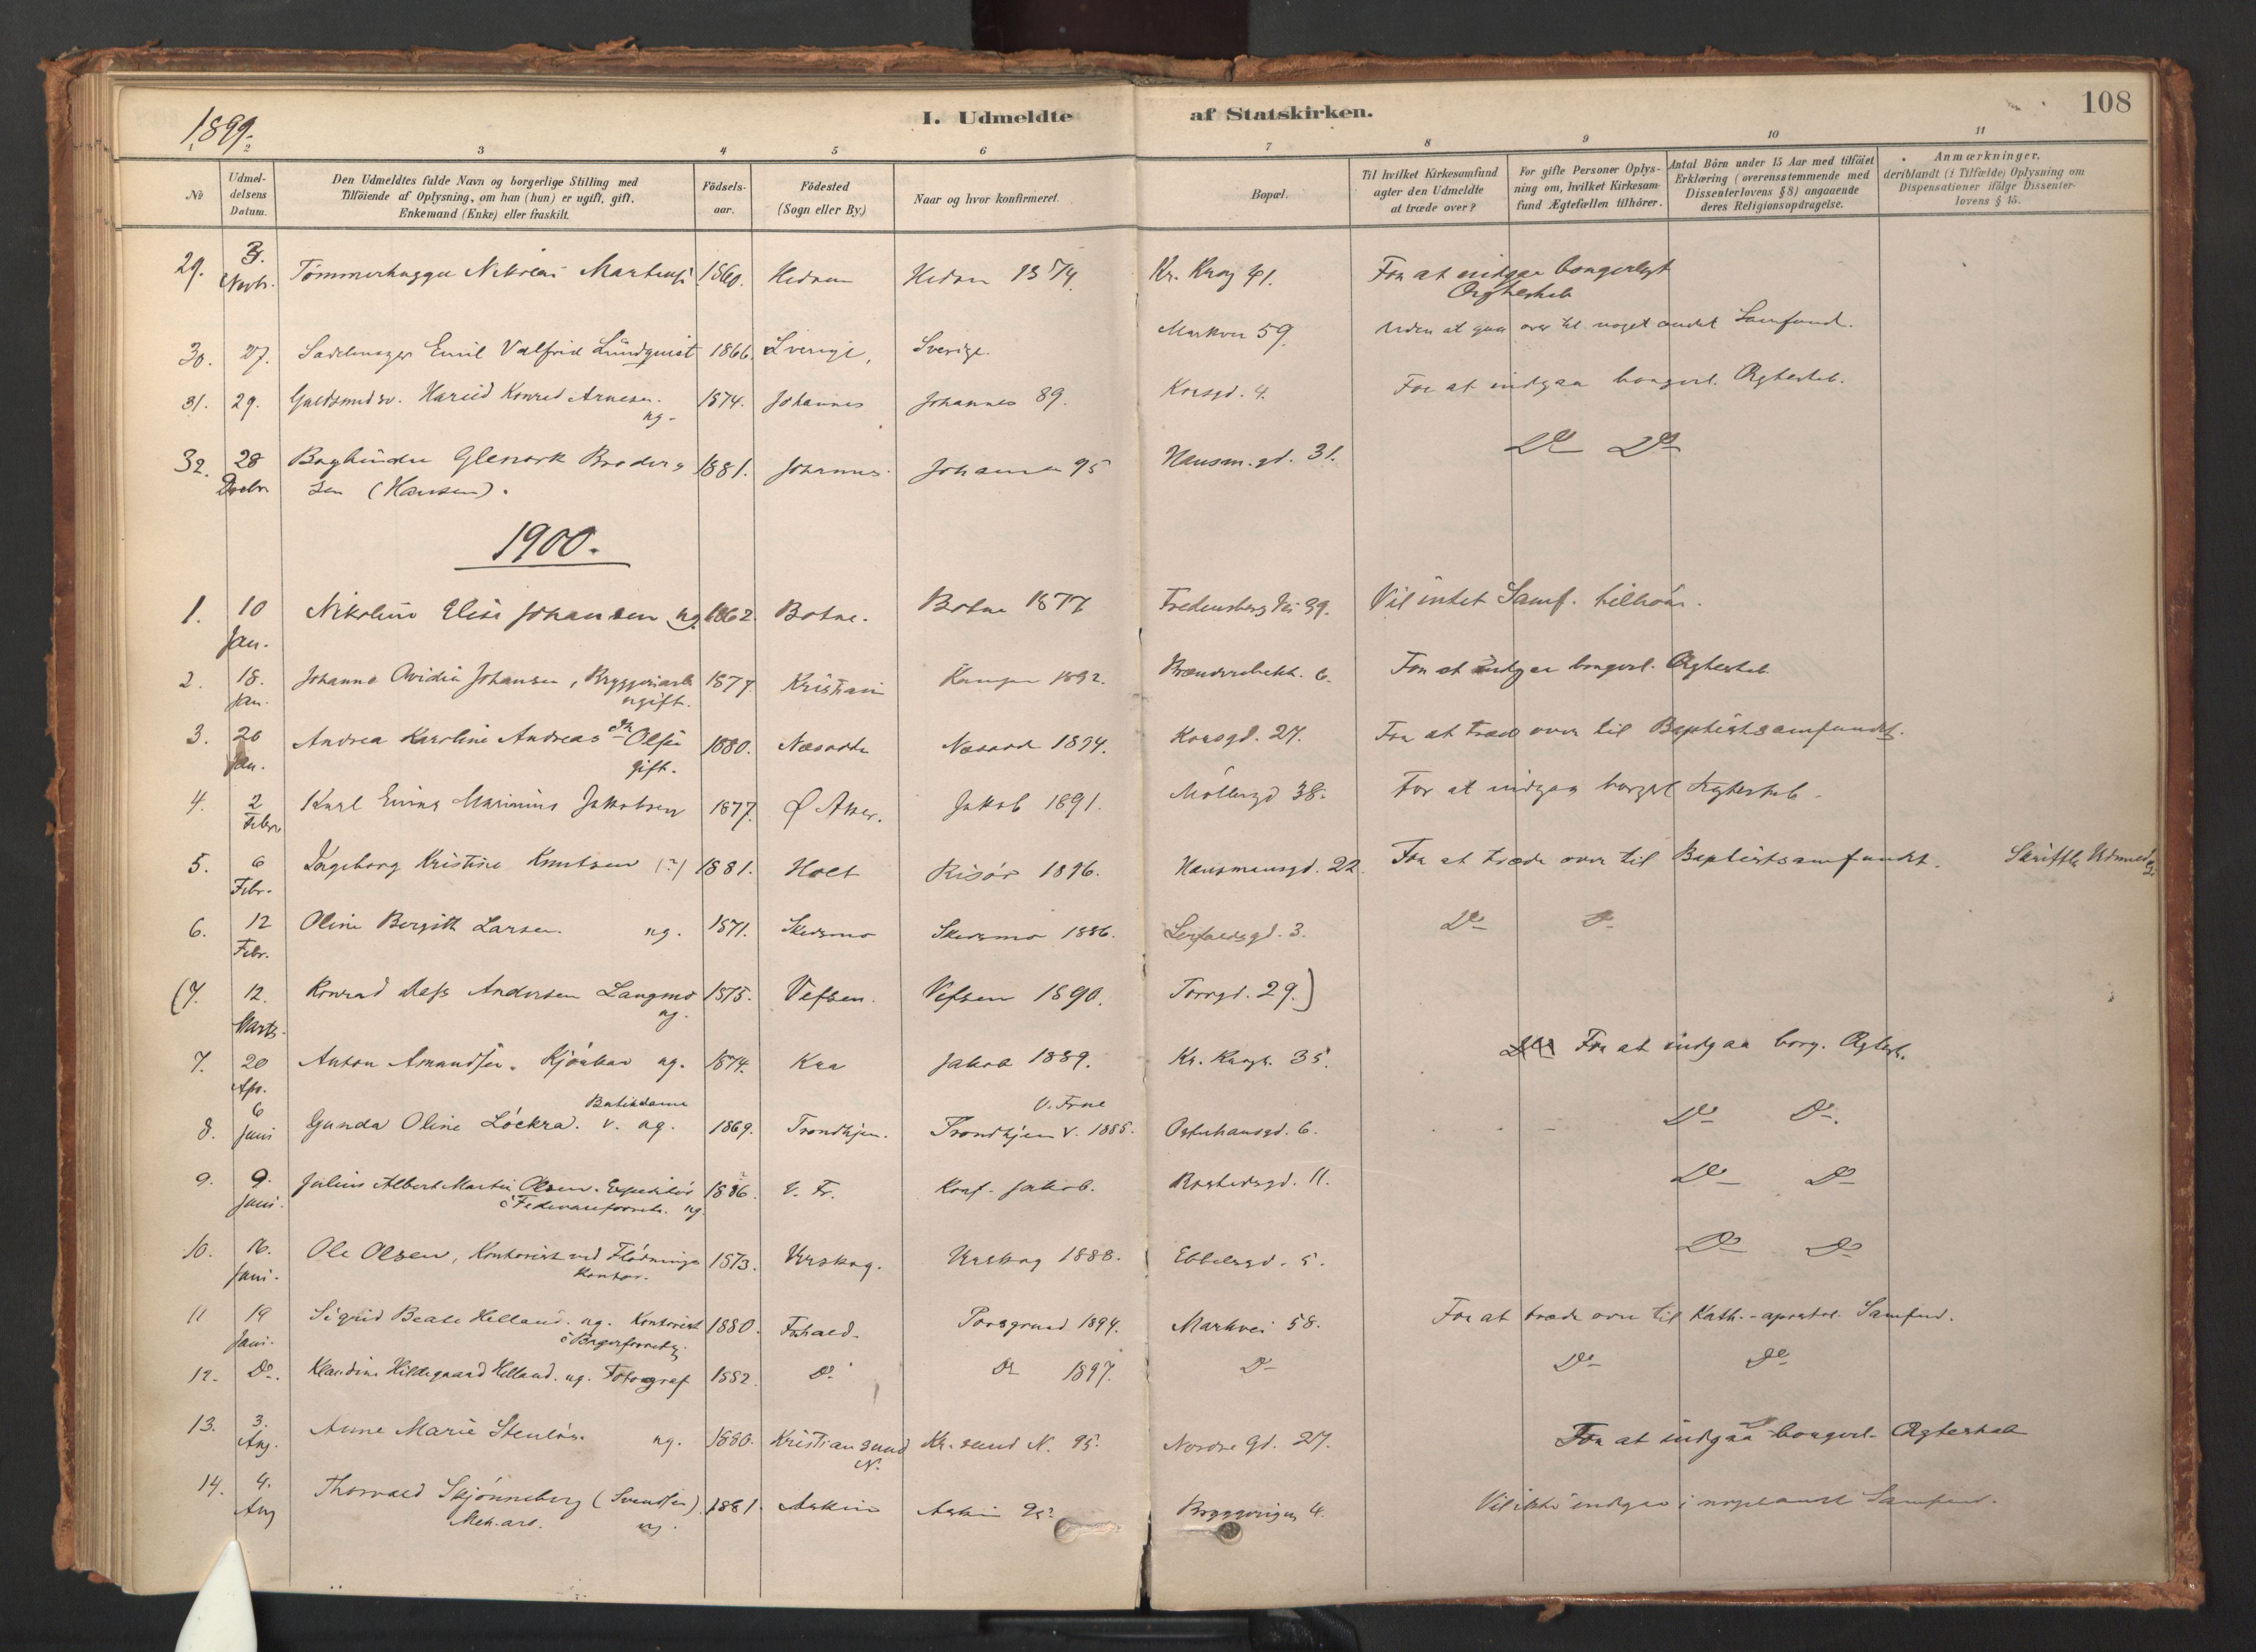 1899.
I. Udmeldte af Statskirken. 108
1 2 3 4 5 6 7 8 9 10 11
No
Udmeldelsens Datum.
Den Udmeldtes fulde Navn og borgerlige Stilling med
Tilföiende af Oplysning, om han (hun) er ugift, gift,
Enkemand (Enke) eller fraskilt.
Födselsaar.
Födested
(Sogn eller By)
Naar og hvor konfirmeret.
Bopæl.
Til hvilket Kirkesamfund
agter den Udmeldte
at træde over?
For gifte Personer Oplys-
ning om, hvilket Kirkesam-
fund Ægtefællen tilhörer.
Antal Börn under 15 Aar med tilföiet
Erklæring (overensstemmende med
Dissenterlovens § 8) angaaende
deres Religionsopdragelse.
Anmærkninger,
deriblandt (i Tilfælde) Oplysning om
Dispensationer ifölge Dissenter-
lovens § 15.
29. 3. Novbr. Tömmerhugger 1860. Hedrum Hedrum 1874. Kr. Krog 41. For at indgaa borgerligt
Ægteskab
30. 27. Sadelmager Emil Valfrid Lundquist 1866. Sverige, Sverige. Markvei 59. Uden at gaa over til noget andet Samfund.
31. 29. Guldsmedsv. Konrad Arnesen. ug. 1874. Johannes Johannes 89. Korsgd. 4. For at indgaa borgerl. Ægteskab.
32. 28 Decbr. Bogbinder Broder- 1881. Johannes. Johannes 95 Hausm.gd. 31. Do Do
sen (Hansen).
1900.
1. 10 Jan. Nikoline Elise Johansen ug. 1862. Botne. Botne 1877 Fredensborg Vei 39. Vil intet Samf. tilhöre.
2. 18. Jan. Johanne Johansen, Bryggeriarb. ugift. 1877. Kristiania Kampen 1892. 6. For at indgaa borgerl. Ægteskab.
3. 20 Jan. Andrea Karoline Andreas Olsen gift. 1880. Næsodden Næsodd 1894. Korsgd. 27. For at træde over til Baptistsamfundet.
4. 2 Febr. Karl Marinius Jakobsen 1877. Ø Aker. Jakob 1891. Möllergd 38. For at indgaa borgerl Ægteskab.
5. 6 Febr. Ingeborg Kristine Knutsen (?) 1881. Holt Risör 1896. Hausmansgd. 22. For at træde over til Baptistsamfundet. Skriftl. Udmed.
6. 12 Febr. Oline Bergitte Larsen. ug. 1871. Skedsmo Skedsmo 1886. Leirfaldsgd. 3. Do Do
(7. 12. Marts. Konrad Andersen Langmo ug. 1875. Vefsen. Vefsen 1890. Torvgd. 29.)
7. 20 Apr. Anton Amundsen. ug. 1874. Kra Jakob 1889. Kr. Krogh. 35. For at indgaa borg. Ægtesk.
8. 6 Juni Gunda Oline Löckra. v. ug. Butikdame 1869. Trondhjem. Trondhjem V. 1885. V. Frue Osterhausgd. 6. Do Do
9. 9. Juni. Julius Albert Martin Olsen. Expeditör 1886. V. Fr. Konf. Jakob. Rostedsgd. 11. Do Do
i Fedevareforretn. ug.
10. 16. Juni. Ole Olsen, Kontorist ved Flödnings 1873. Urskog. Urskog 1888. Ebbelsgd. 5. Do Do
kontor.
11 19 Juni. Sigrid Beate Helland. ug. Kontorist 1880. Frhald. Porsgrund 1894. Markvei 58. For at træde over til Kath.-apostol. Samfund.
12. Do. Klaudine Hildegaard Helland. ug. Fotograf 1882. Do Do 1897. Do Do Do
13. 3. Aug. Anne Marie Stenlös. ug. 1880. Kristiansund N. Kr.sund N. 95. Nordre Gd. 27. For at indgaa borgerl. Ægteskab
14. 4. Aug Thorvald Skjönneberg (Svendsen). 1881. Askim Askim 95. 4. Vil ikke indgaa i Samfund.
Mek.arb. ug.